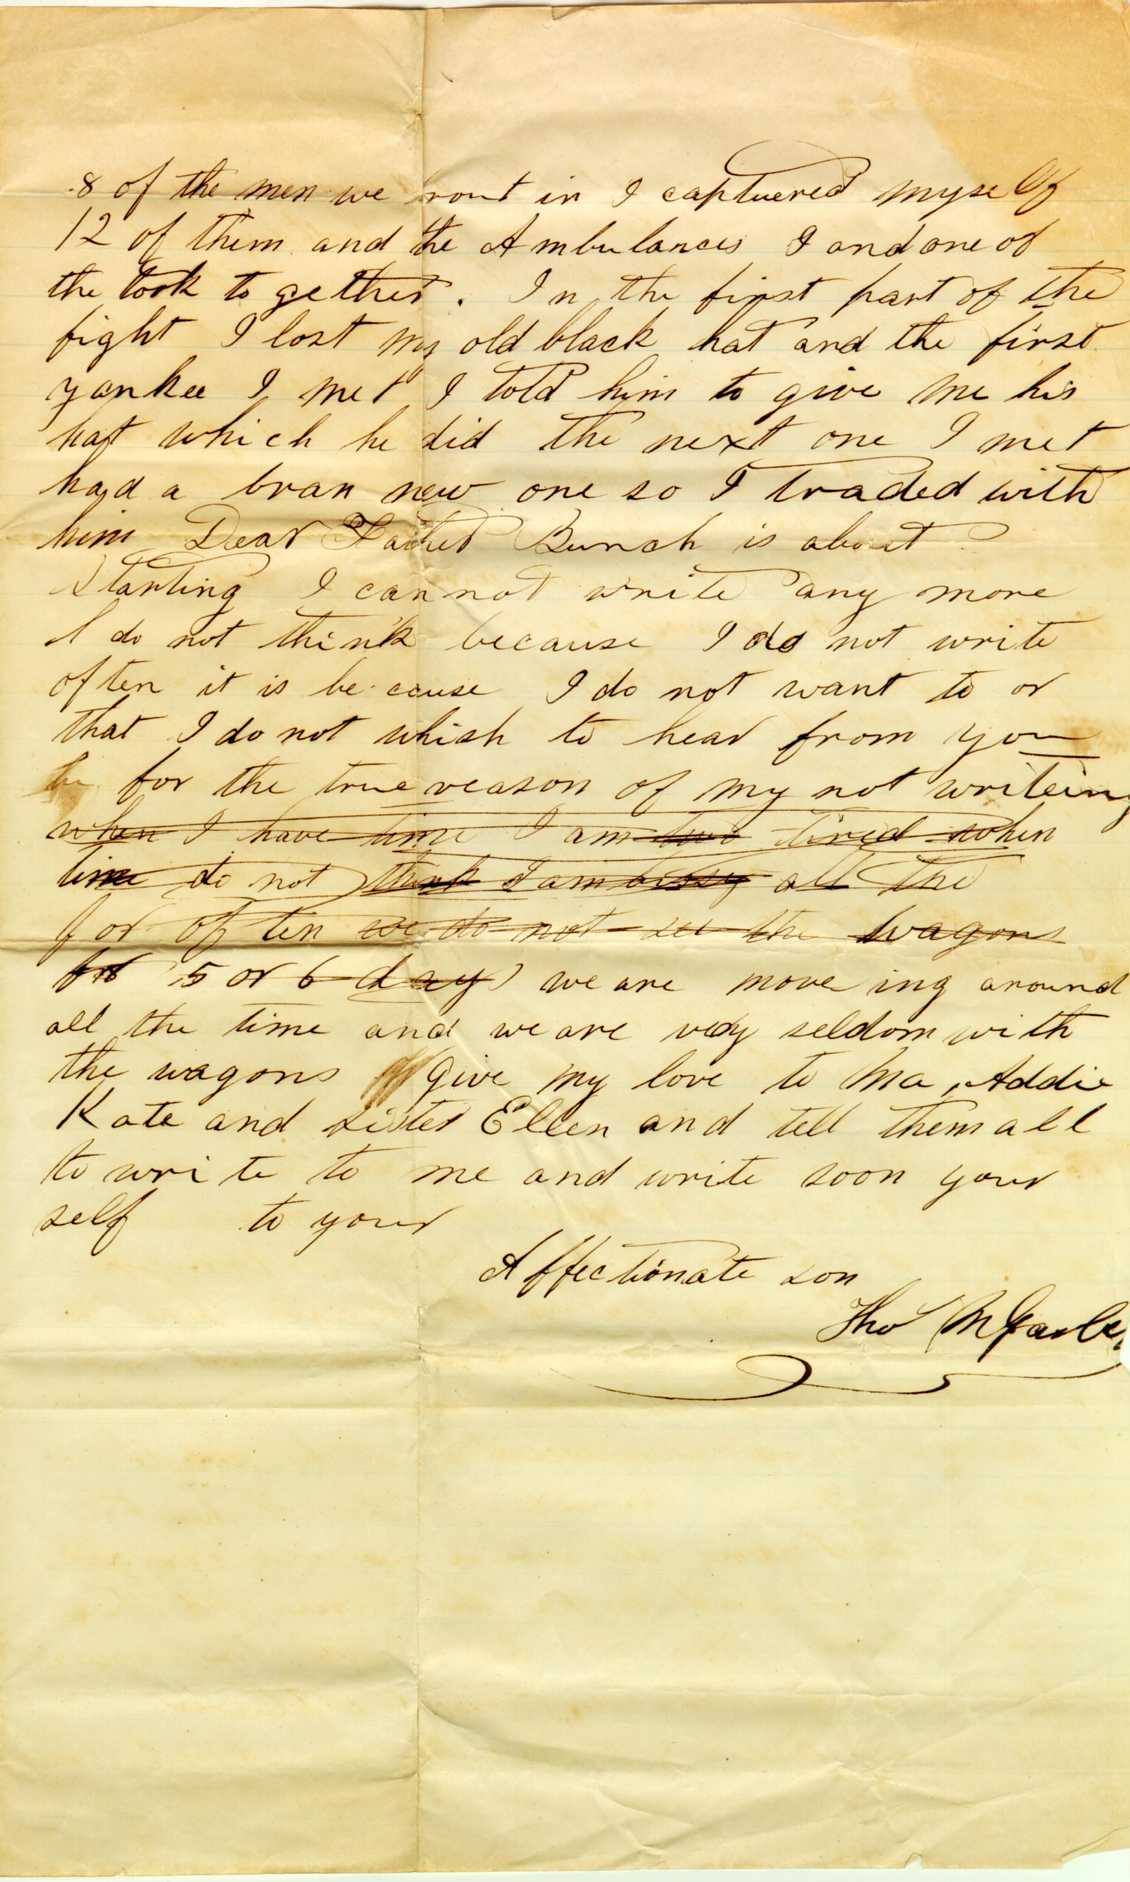 8 of the men we went in I captuered myself
12 of them and the Ambulances I and one of
the took to gether. In the first part of the
fight I lost my old black hat and the first
yankee I met I told him to give me his
hat which he did the next one I met
had a bran new one so I traded with
him Dear Father Bunch is about
Starting I can not write any more
I do not think because I do not write
often it is be cause I do not want to or
that I do not whish to hear from you
for the true reason of my not writeing
when I have time I am two tired when
time do not think I am bissy all the
for often we do not see the wagons
for 5 or 6 days we are move ing around
all the time and we are very seldom with
the wagons Give my love to Ma, Addie
Kate and sister Ellen and tell them all
to write to me and write soon your
self to your
Affectionate son
Tho M